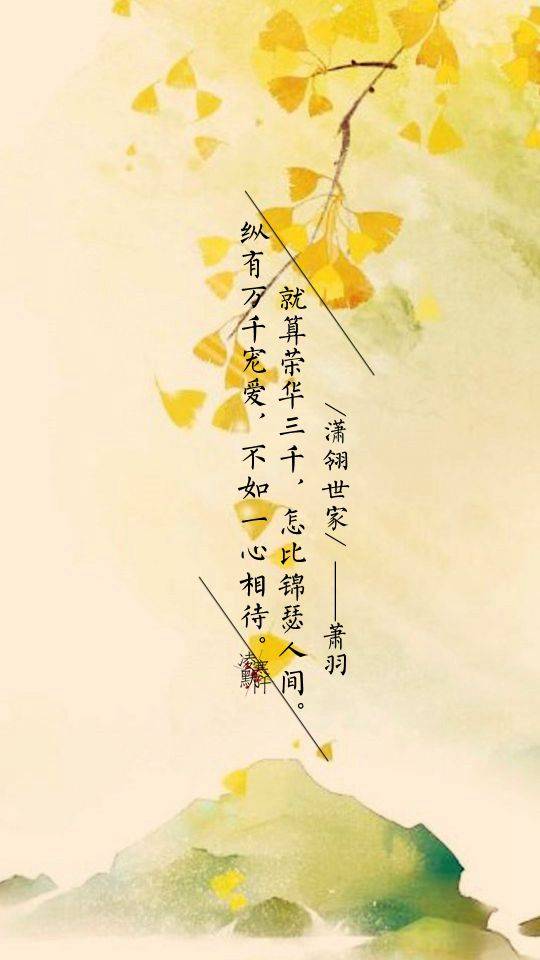 纵有万千宠爱，不如一心相待。
就算荣华三千，怎比锦瑟人间。
/潇翎世家/ ——萧羽